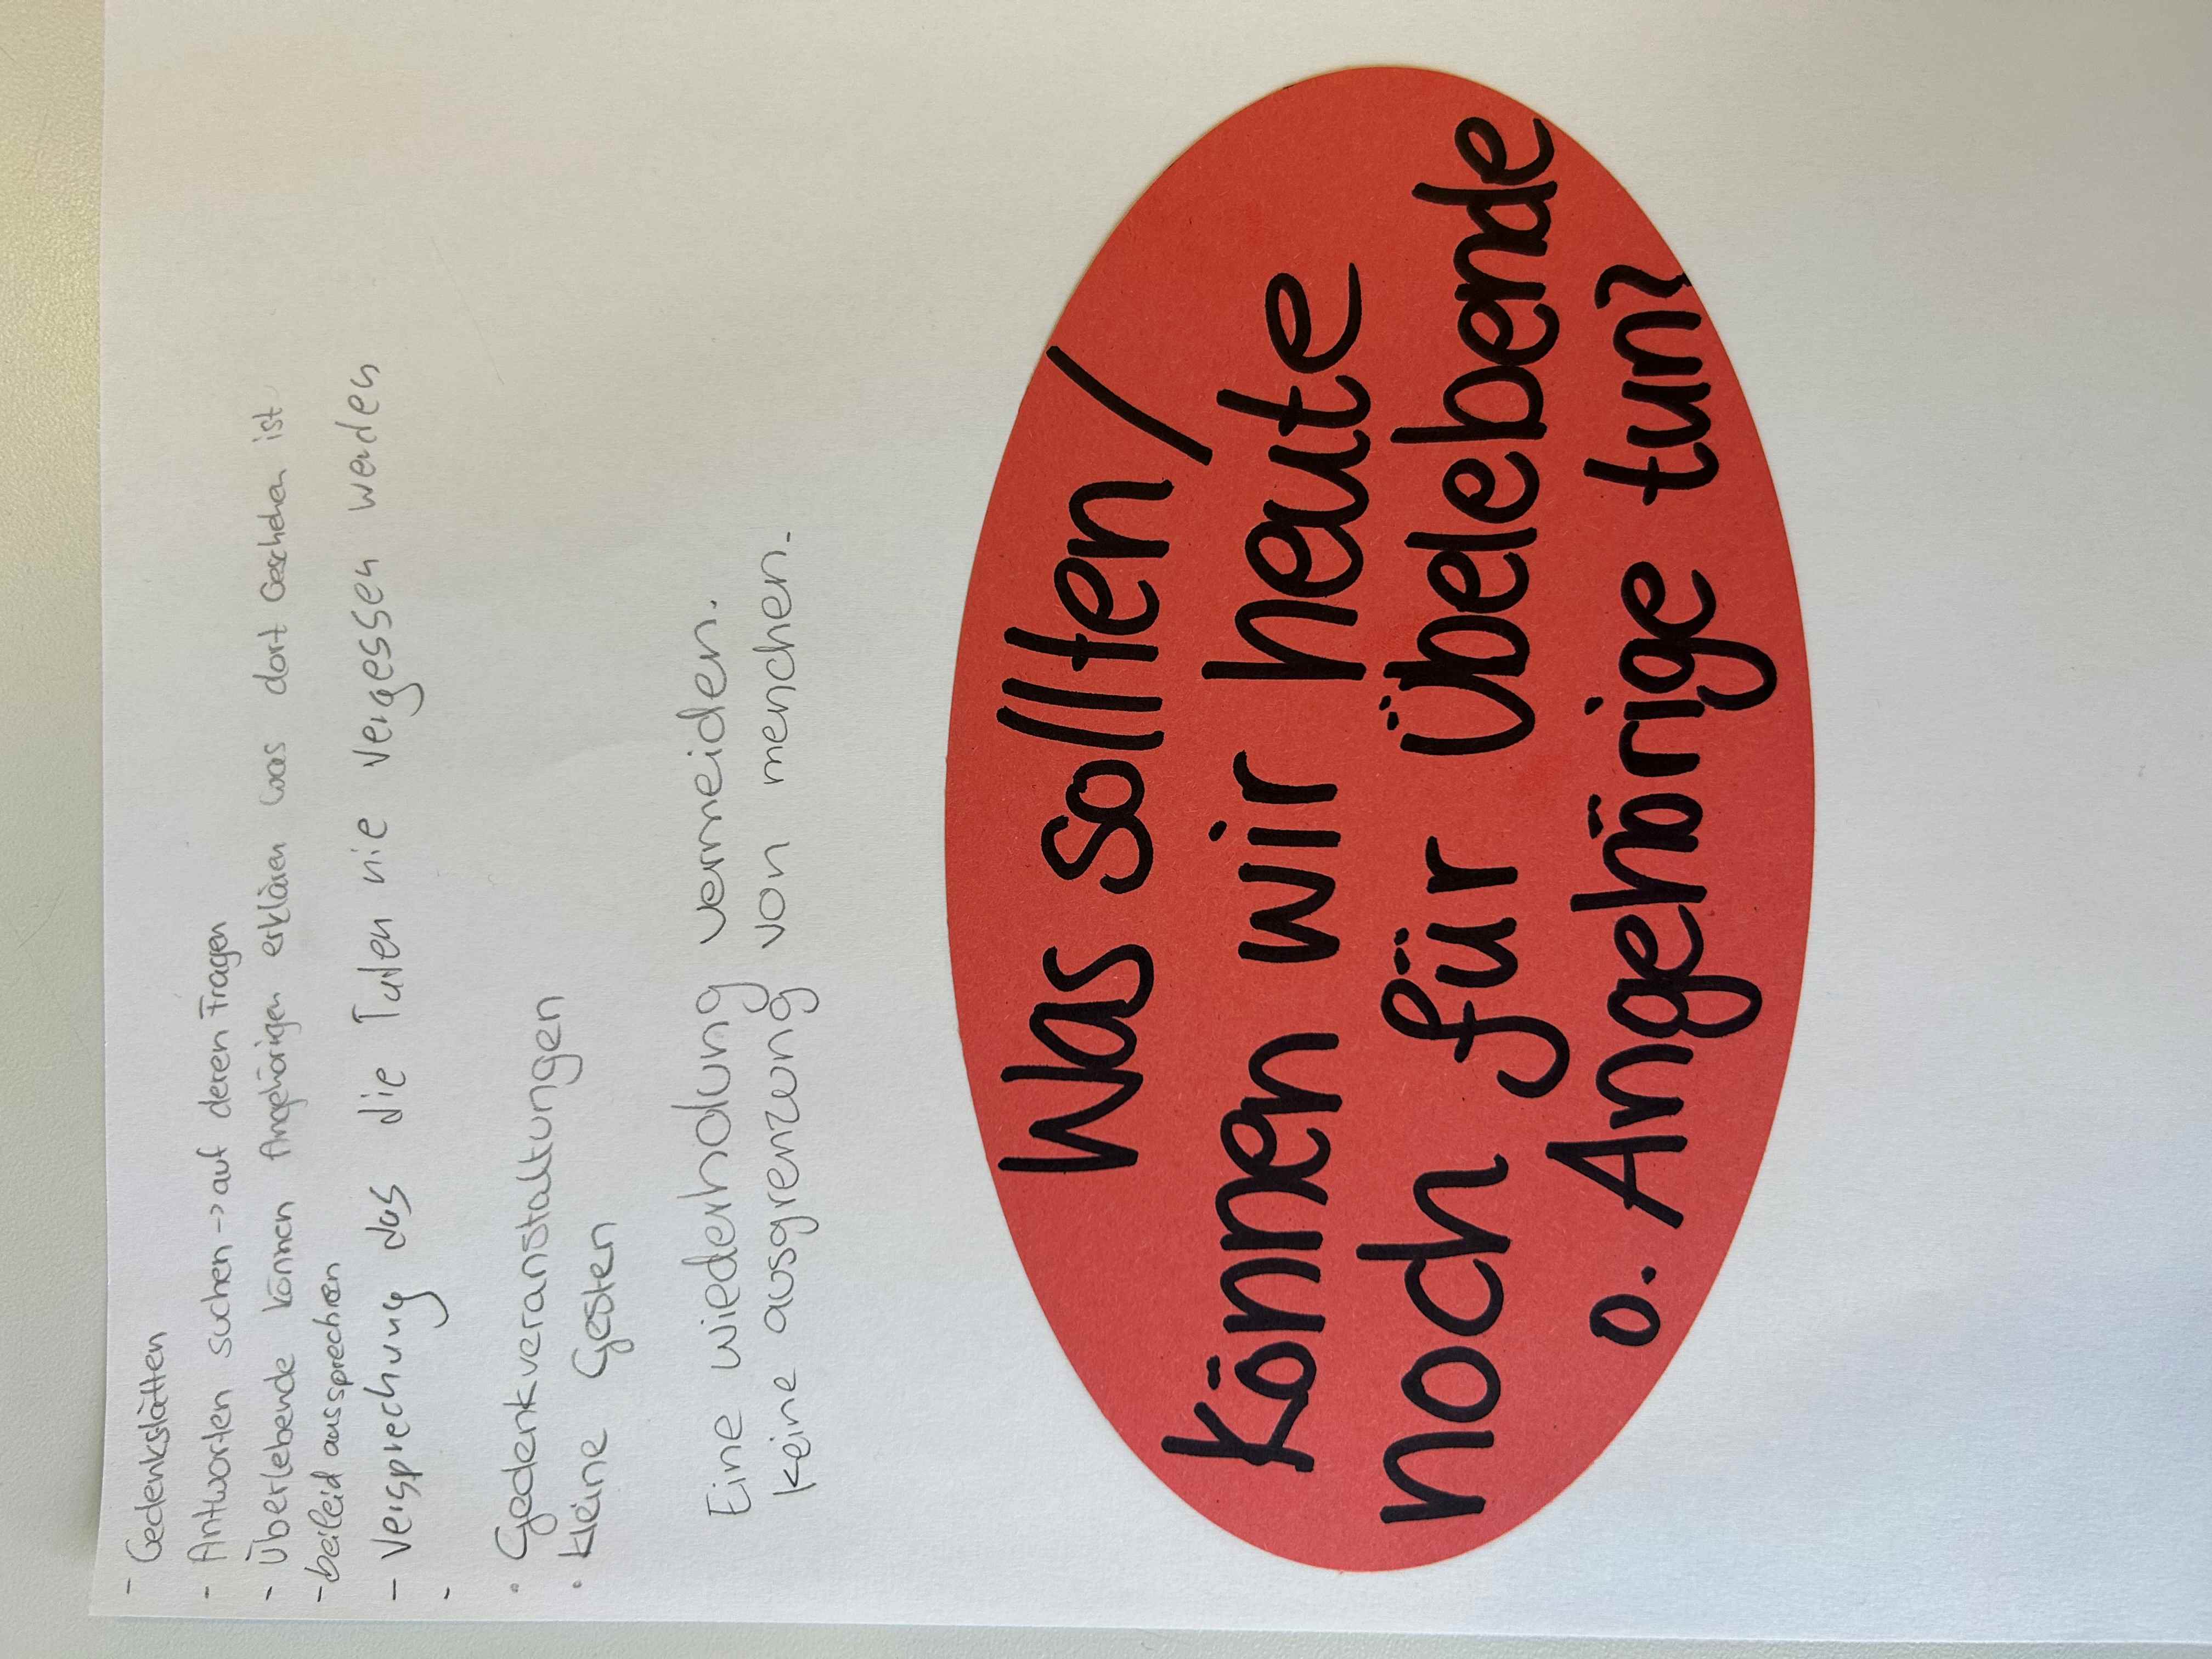 - Gedenkstätten
- Antworten suchen -> auf deren Fragen
- Überlebende können Angehörigen erklären was dort Geschehen ist
- beileid aussprechen
- Versprechung das die Taten nie vergessen werden
-
· Gedenkveranstaltungen
· kleine Gesten
Eine wiederholung vermeiden.
keine ausgrenzung von menchen.
Was sollten/
können wir heute
noch für Übelebende
o. Angehörige tun?